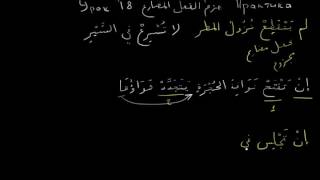 Урок 18 جزم الفعل المضارع Практика
لم يَنْقَطِعْ نُزُولُ المطر لا تُسْرِعْ في السَّيْرِ
فعل مضارع
مجزوم
إنْ تَفْتَحْ نَوَافِذَ الحُجْرَةِ يَتَجَدَّدْ هَوَاؤُهَا
إنْ تَجْلِس في